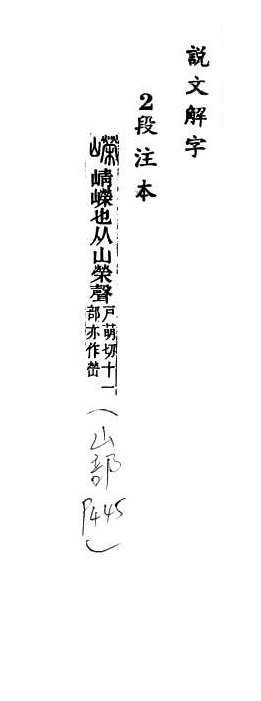 説文解字
2段注本
嶸 崝嶸也从山榮聲戶萌切十一部亦作㟅
(山部
P445)